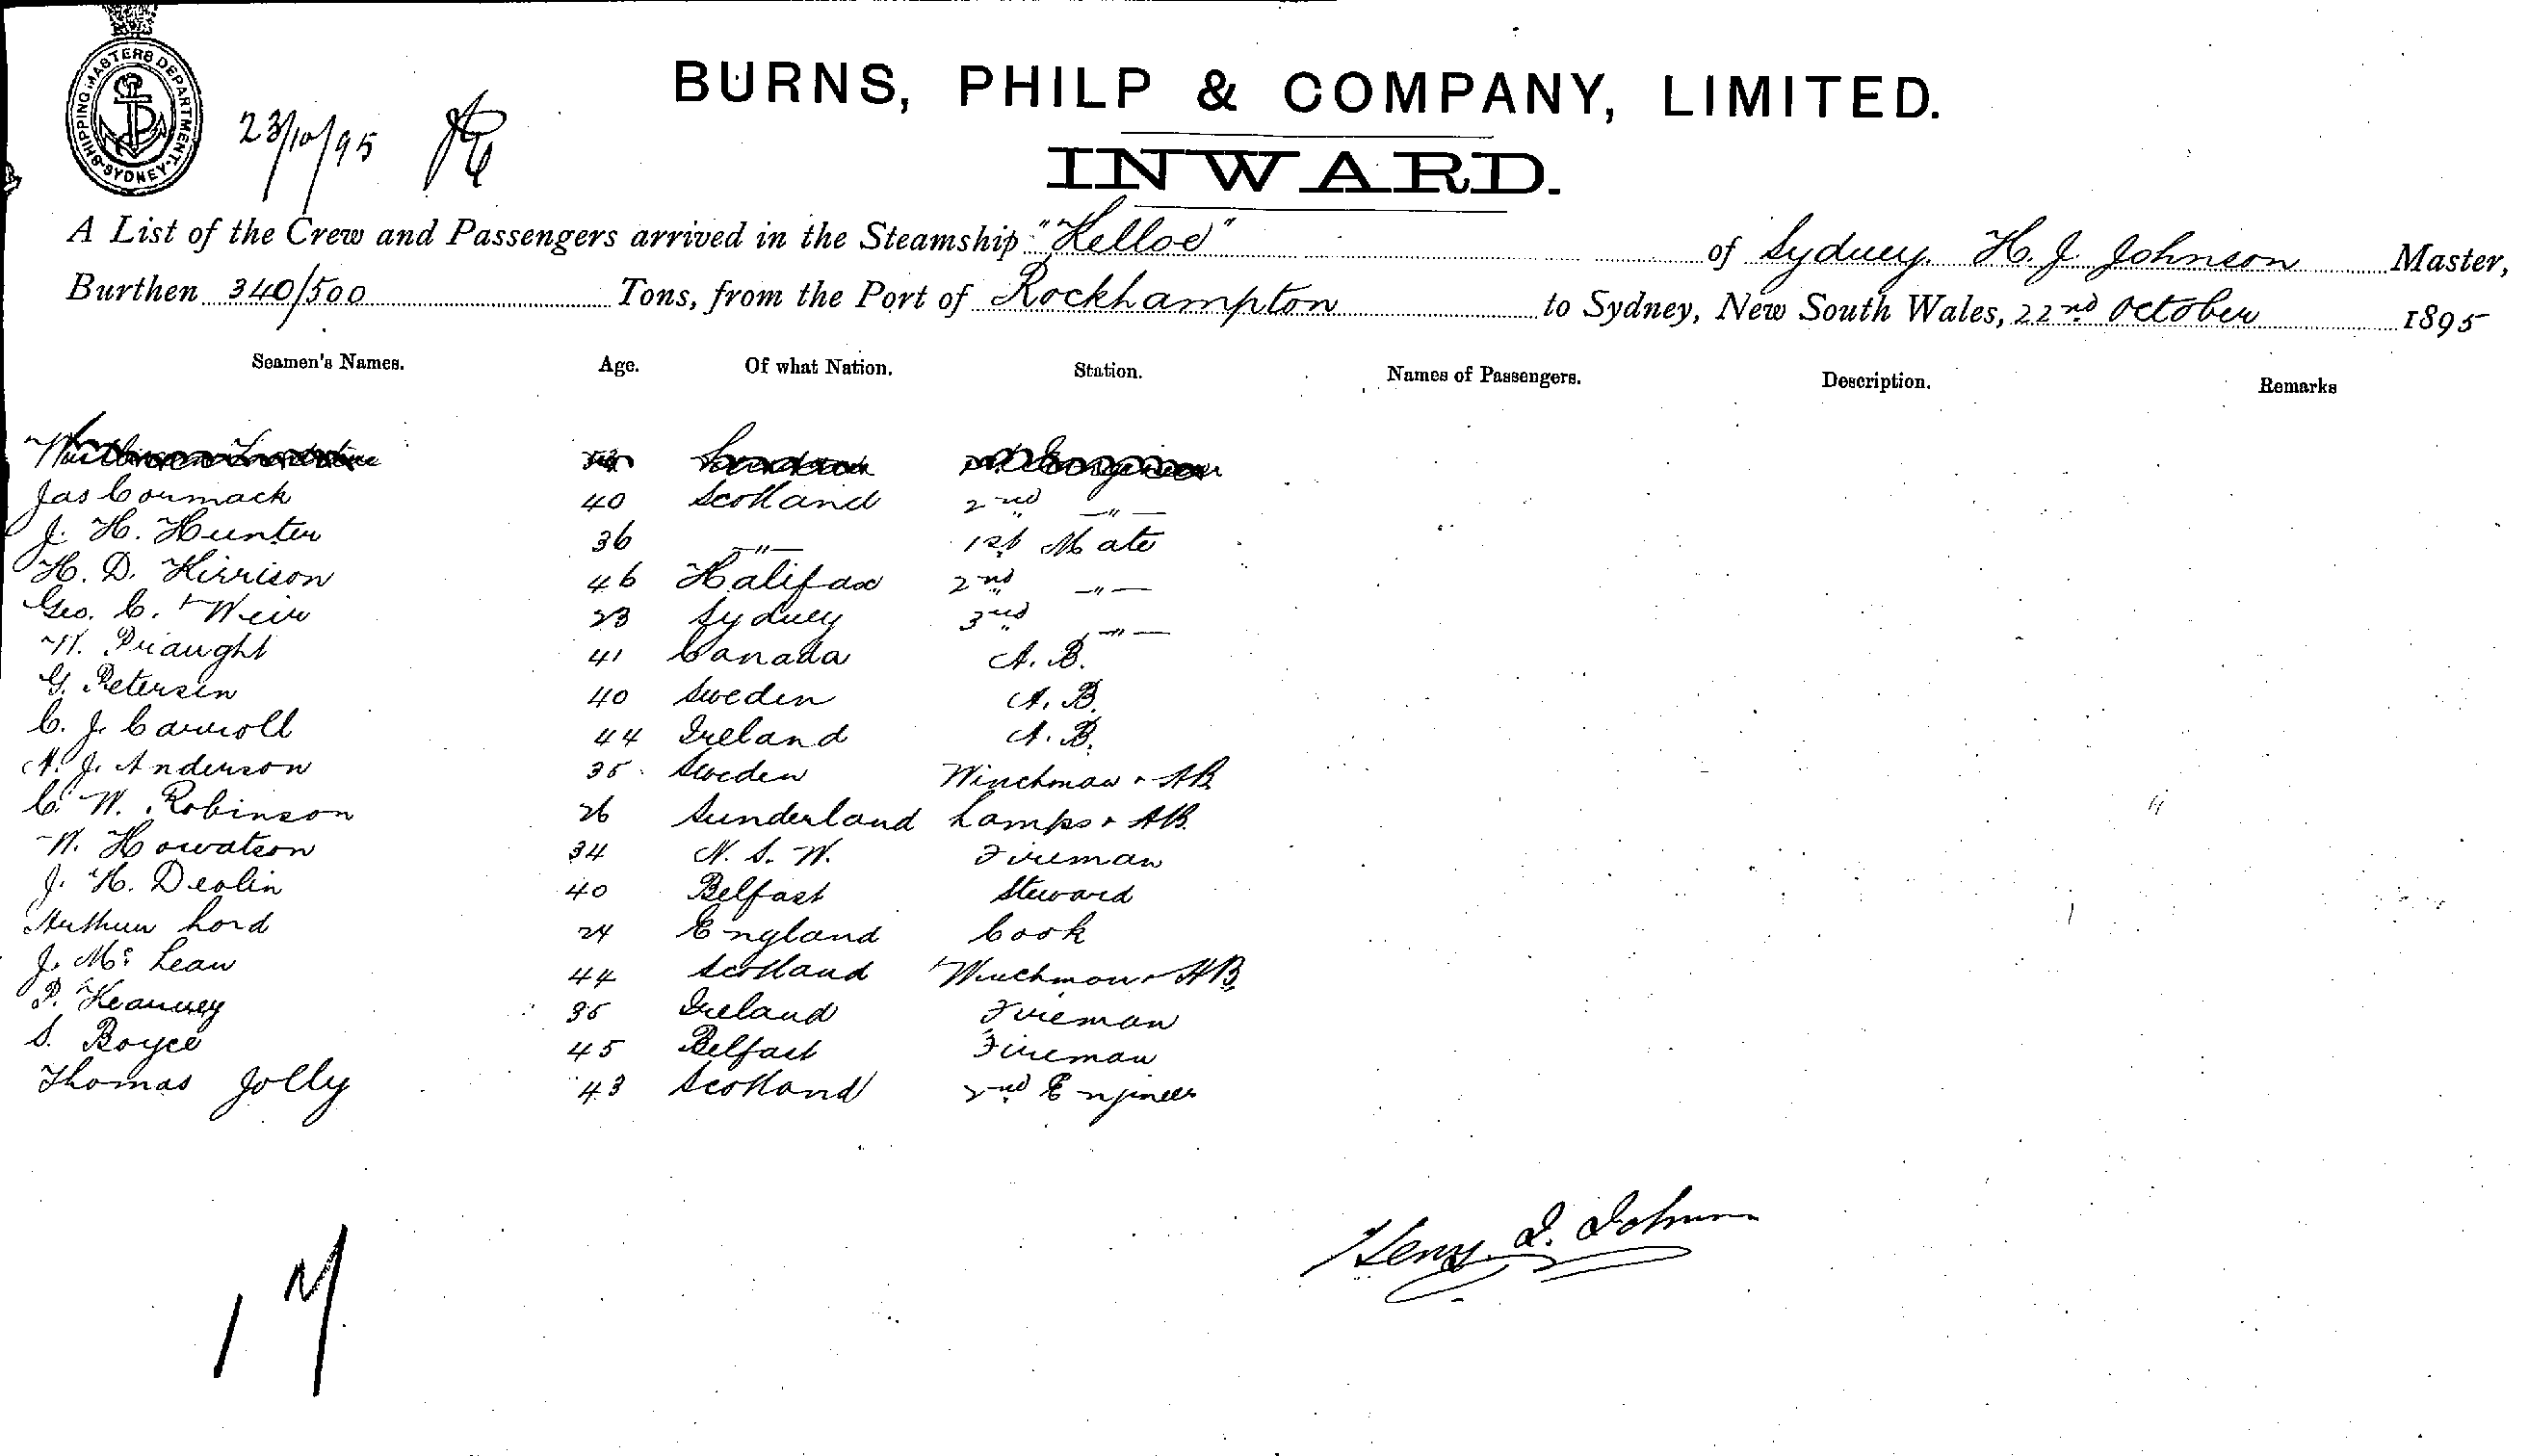 SHIPPING MASTERS DEPARTMENT SYDNEY
23/10/95
BURNS, PHILP & COMPANY, LIMITED.
INWARD.
A List of the Crew and Passengers arrived in the Steamship "Kelloe" of Sydney. H. J. Johnson Master,
Burthen 340/500 Tons, from the Port of Rockhampton to Sydney, New South Wales, 22nd October 1895
Seamen's Names. Age. Of what Nation. Station. Names of Passengers. Description. Remarks
Jas Cormack 40 Scotland 2nd —"—
J. H. Hunter 36 —"— 1st Mate
H. D. Kirrison 46 Halifax 2nd —"—
Geo. C. Weir 23 Sydney 3rd —"—
W. Draught 41 Canada A. B.
G. Petersen 40 Sweden A. B.
C. J. Carroll 44 Ireland A. B.
A. J. Anderson 35 Sweden Winchman & AB
C. W. Robinson 26 Sunderland Lamps & AB.
W. Howatson 34 N. S. W. Fireman
J. H. Devlin 40 Belfast Steward
Arthur Lord 24 England Cook
J. Mc Lean 44 Scotland Winchman & AB
P. Kearney 35 Ireland Fireman
S. Boyce 45 Belfast Fireman
Thomas Jolly 43 Scotland 2nd Engineer
Henry J. Johnson
17